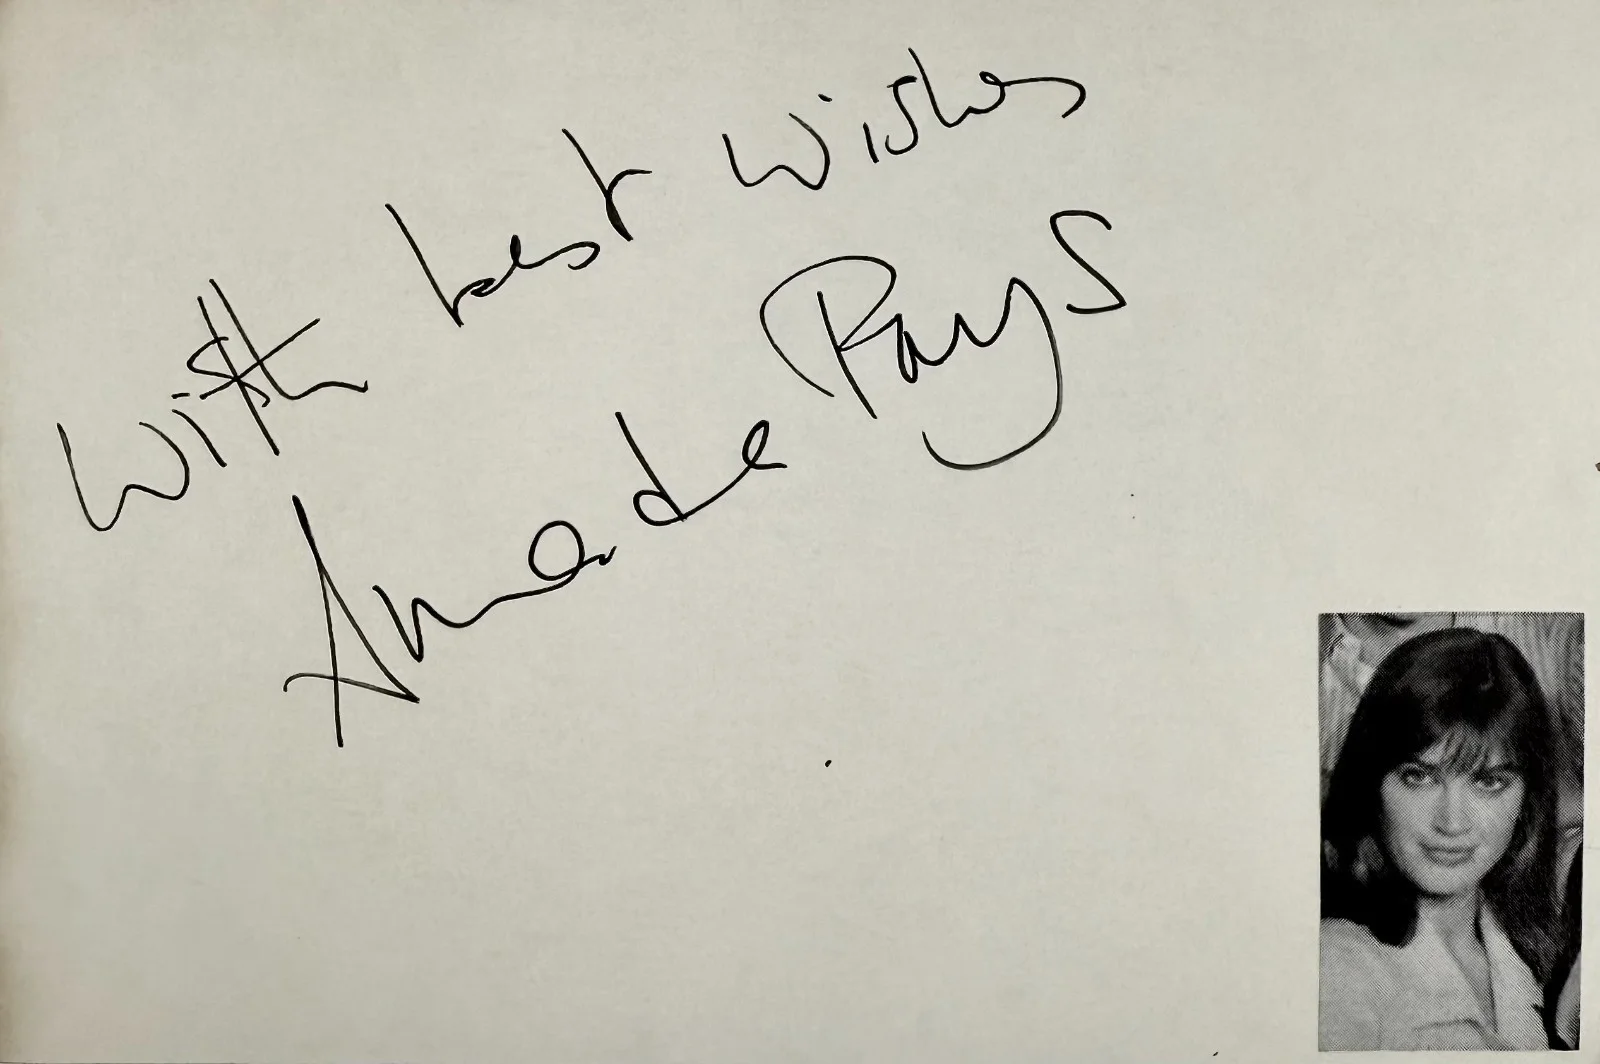 With best wishes
Amanda Pays